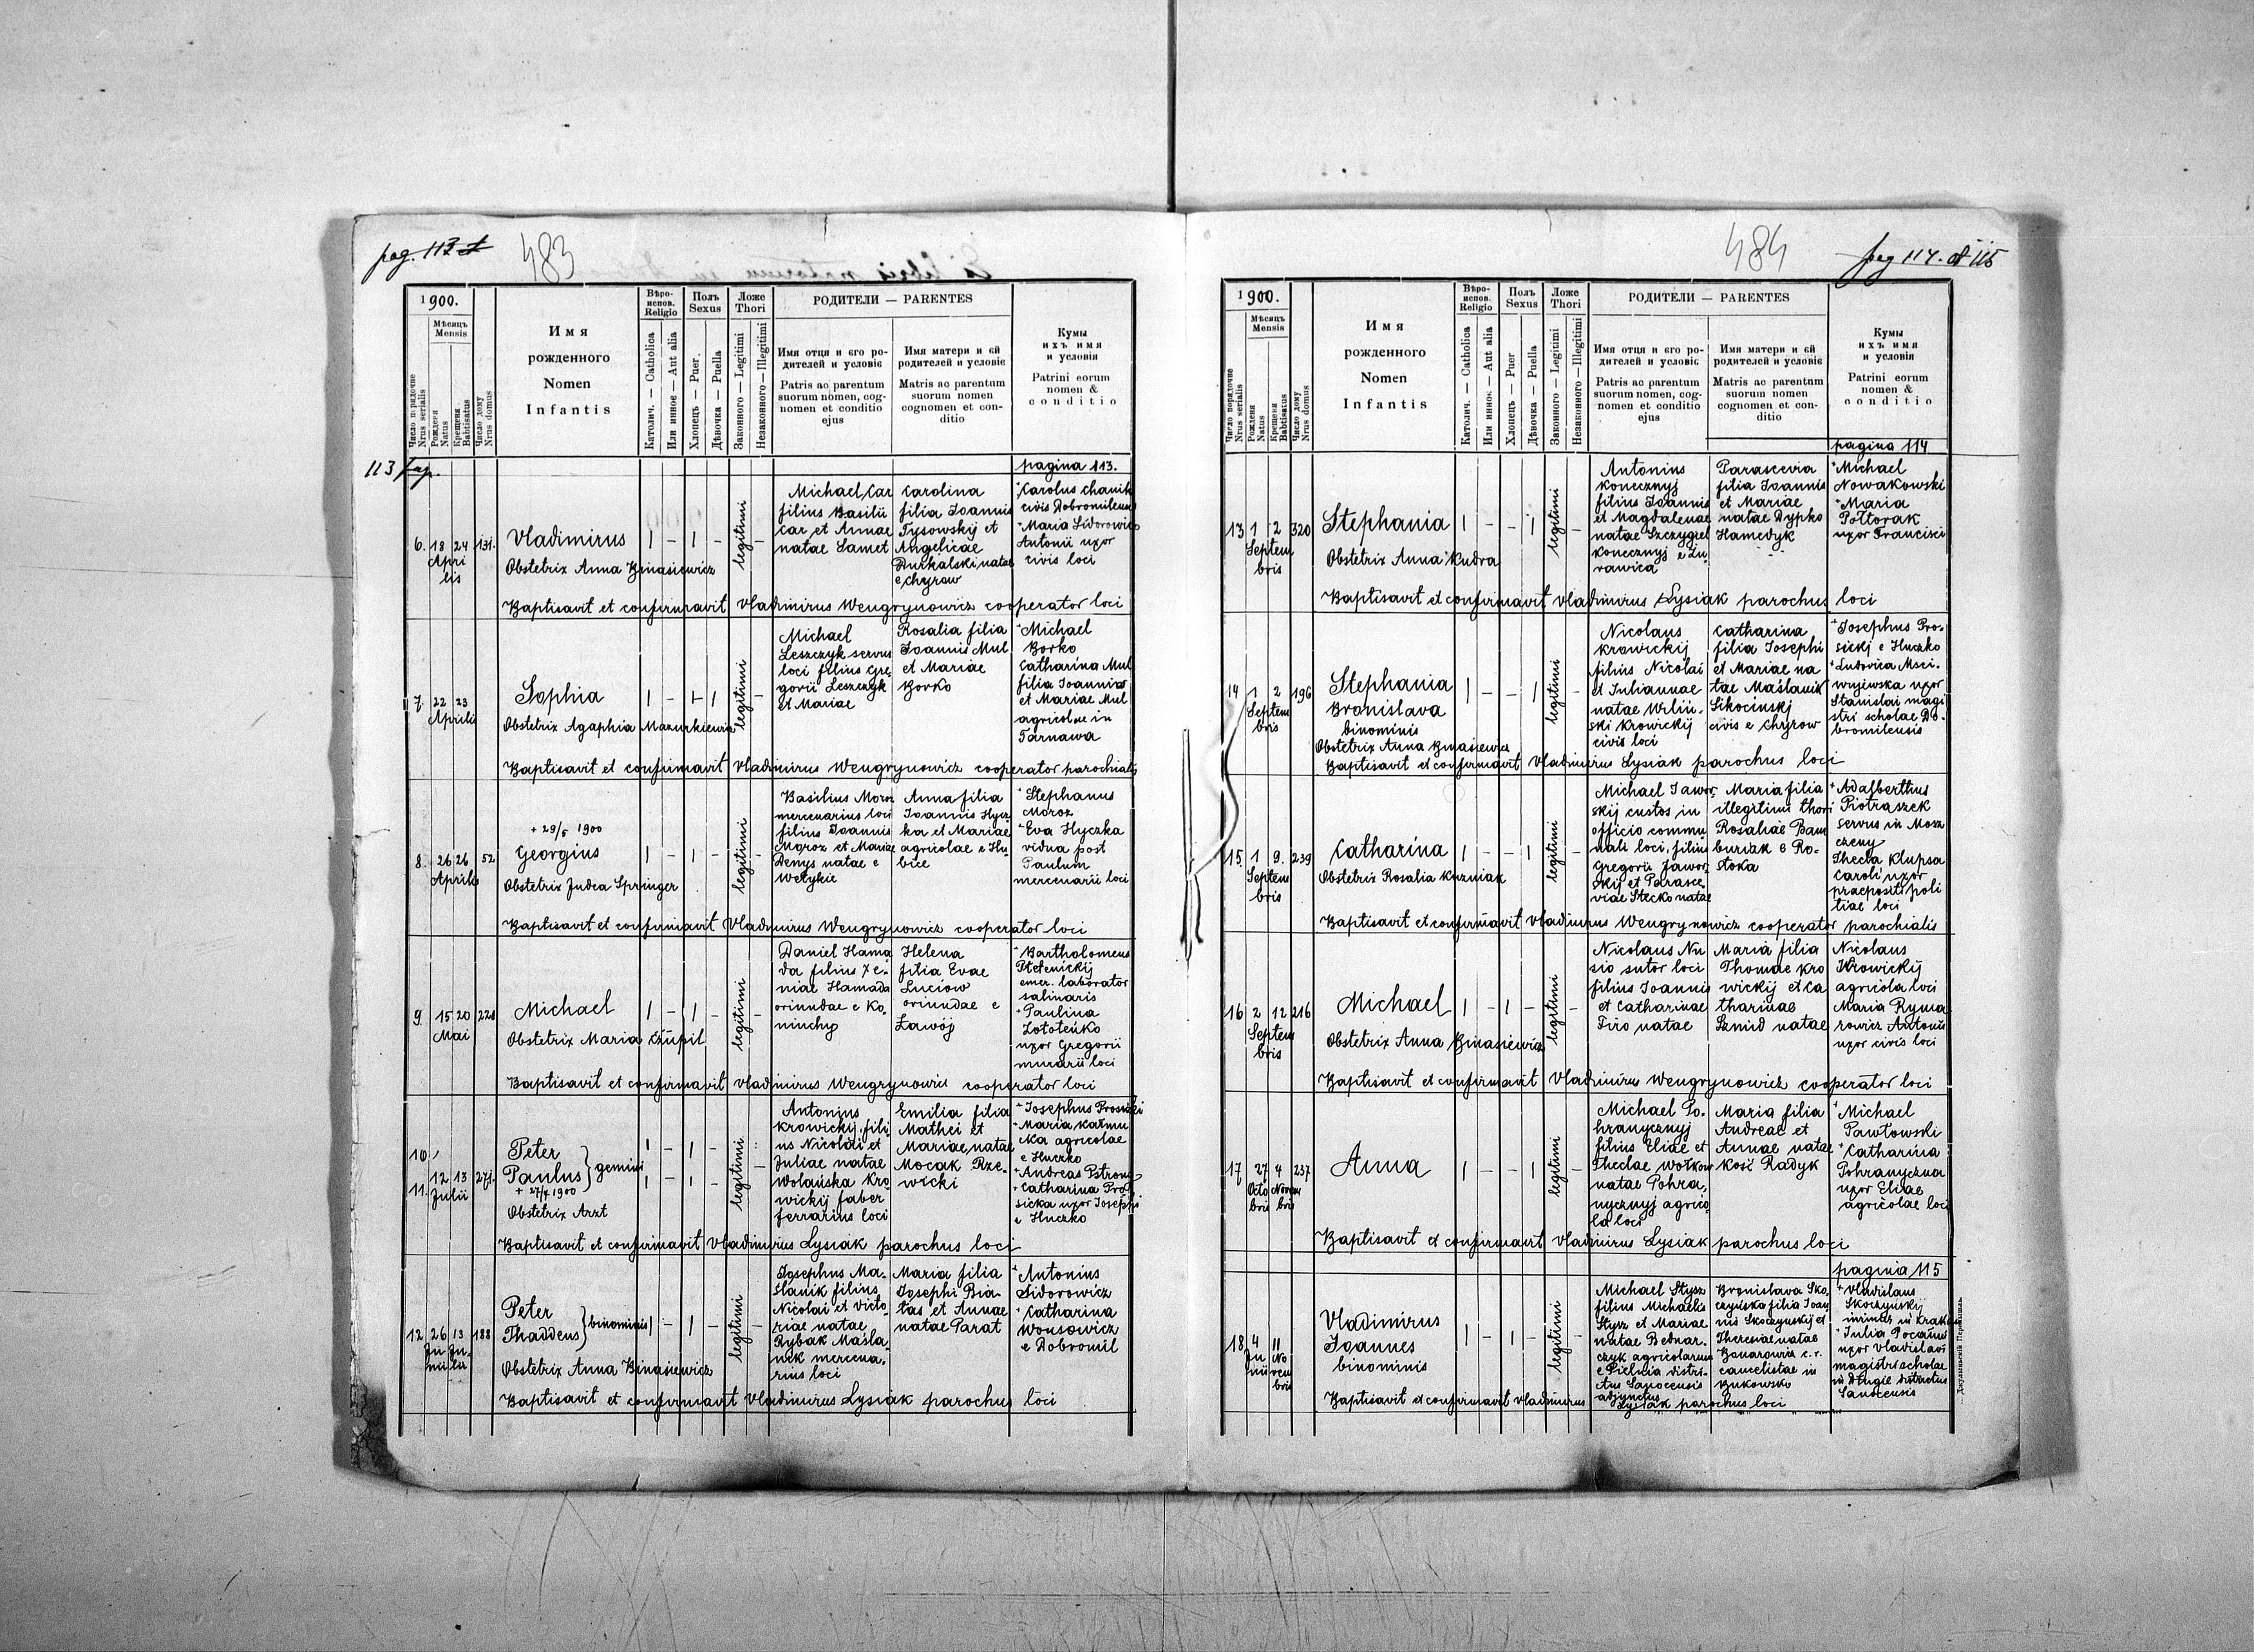 pag. 113 et
483
1900.
Мѣсяцъ
Mensis
Число порядочне
Nrus serialis
Рожденя
Natus
Крещеня
Babtisatus
Число дому
Nrus domus
Имя
рожденного
Nomen
Infantis
Вѣро-
испов.
Religio
Католич. — Catholica
Или инноє — Aut alia
Полъ
Sexus
Хлопець — Puer
Дѣвочка — Puella
Ложе
Thori
Законного — Legitimi
Незаконного — Illegitimi
РОДИТЕЛИ — PARENTES
Имя отця и єго ро-
дителей и условіє
Patris ac parentum
suorum nomen, cog-
nomen et conditio
ejus
Имя матери и єй
родителей и условіє
Matris ac parentum
suorum nomen
cognomen et con-
ditio
Кумы
ихъ имя
и условія
Patrini eorum
nomen &
conditio
113
pagina 113.
6. 18 24 131.
Aprilis
Vladimirus
Obstetrix Anna Binasiewicz
legitimi
Michael Car
filius Basilii
Car et Annae
natae Samet
Carolina
filia Joannis
Tysowskij et
Angelicae
Burkalski natae
e Chyrow
Carolus Chanik
civis Dobromilensis
Maria Sidorowicz
Antonii uxor
civis loci
Baptisavit et confirmavit Vladimirus Wengrynowicz cooperator loci
7. 22 23
Aprilis
Sophia
Obstetrix Agaphia Mazurkiewicz
legitimi
Michael
Leszczyk servus
loci filius Gre
gorii Leszczyk
et Mariae
Rosalia filia
Joannis Mul
et Mariae
Borko
Michael
Borko
Catharina Mul
filia Joannis
et Mariae Mul
agricolae in
Tarnawa
Baptisavit et confirmavit Vladimirus Wengrynowicz cooperator parochialis
8. 26 26 52
Aprilis
+ 29/5 1900
Georgius
Obstetrix Judea Springer
legitimi
Basilius Moroz
mercenarius loci
filius Joannis
Moroz et Mariae
Denys natae e
Welykie
Anna filia
Joannis Hycz
ka et Mariae
agricolae e Hu
bice
Stephanus
Moroz
Eva Hyczka
vidua post
Paulum
mercenarii loci
Baptisavit et confirmavit Vladimirus Wengrynowicz cooperator loci
9. 15 20 228
Mai
Michael
Obstetrix Maria Czupil
legitimi
Daniel Hama
da filius Xe-
niae Hamada
oriundae e Ko
niuchy
Helena
filia Evae
Luciow
oriundae e
Ławój
Bartholomeus
Ptelenickij
emer. laborator
salinaris
Paulina
Zołoteńko
uxor Gregorii
murarii loci
Baptisavit et confirmavit Vladimirus Wengrynowicz cooperator loci
10
11. 12 13 271.
Julii
Peter
Paulus } gemini
+ 27/7 1900
Obstetrix Arzt
legitimi
Antonius
Krowickij, fili
us Nicolai et
Juliae natae
Wolańska Kro
wickij faber
ferrarius loci
Emilia filia
Mathei et
Mariae natae
Mocak Rze-
wicki
Josephus Prosicki
Maria Kałmu
cka agricolae
e Huczko
Andreas Pstrong
Catharina Pro
sicka uxor Josephi
e Huczko
Baptisavit et confirmavit Vladimirus Lysiak parochus loci
12 26 13 188
Junii Julii
Peter
Thaddeus } binominis
Obstetrix Anna Binasiewicz
legitimi
Josephus Ma-
ślanik filius
Nicolai et Victo-
riae natae
Rybak Maśla-
nik mercena-
rius loci
Maria filia
Josephi Bia-
tas et Annae
natae Parat
Antonius
Sidorowicz
Catharina
Wonsowicz
e Dobromil
Baptisavit et confirmavit Vladimirus Lysiak parochus loci
484
pag 114. et 115
1900.
Мѣсяцъ
Mensis
Число порядочне
Nrus serialis
Рожденя
Natus
Крещеня
Babtisatus
Число дому
Nrus domus
Имя
рожденного
Nomen
Infantis
Вѣро-
испов.
Religio
Католич. — Catholica
Или инноє — Aut alia
Полъ
Sexus
Хлопець — Puer
Дѣвочка — Puella
Ложе
Thori
Законного — Legitimi
Незаконного — Illegitimi
РОДИТЕЛИ — PARENTES
Имя отця и єго ро-
дителей и условіє
Patris ac parentum
suorum nomen, cog-
nomen et conditio
ejus
Имя матери и єй
родителей и условіє
Matris ac parentum
suorum nomen
cognomen et con-
ditio
Кумы
ихъ имя
и условія
Patrini eorum
nomen &
conditio
pagina 114
13 1 2 320
Septembris
Stephania
Obstetrix Anna Kudra
legitimi
Antonius
Konecznyj
filius Joannis
et Magdalenae
natae Szczygiel
Konecznyj e Lu
rawica
Parascevia
filia Joannis
et Mariae
natae Dypko
Hamedyk
Michael
Nowakowski
Maria
Półtorak
uxor Francisci
Baptisavit et confirmavit Vladimirus Lysiak parochus loci
14 1 2 196
Septembris
Stephania
Bronislava
binominis
Obstetrix Anna Binasiewicz
legitimi
Nicolaus
Krowickij
filius Nicolai
et Juliannae
natae Wrliń-
ski Krowickij
civis loci
Catharina
filia Josephi
et Mariae na
tae Maślanik
Sikocinskj
civis e Chyrow
Josephus Pro-
sickj e Huczko
Ludovica Msci-
wujewska uxor
Stanislai magi
stri scholae Do-
bromilensis
Baptisavit et confirmavit Vladimirus Lysiak parochus loci
15. 1 9. 239
Septembris
Catharina
Obstetrix Rosalia Kuzniak
legitimi
Michael Jawor
skij custos in
officio commu
nali loci, filius
Gregorii Jawor
skij et Parasce
viae Stecko natae
Maria filia
illegitimi thori
Rosaliae Bam
buriak e Ro-
stoka
Adalberthus
Piotraszek
servus in Mosz
czeny
Thecla Klupsa
Caroli uxor
praepositi poli
tiae loci
Baptisavit et confirmavit Vladimirus Wengrynowicz cooperator parochialis
16 2 12 216
Septembris
Michael
Obstetrix Anna Binasiewicz
legitimi
Nicolaus Nu
sio sutor loci
filius Joannis
et Catharinae
Firo natae
Maria filia
Thomae Kro
wickij et Ca
tharinae
Szmid natae
Nicolaus
Krowickij
agricola loci
Maria Ryma
rowicz Antonii
uxor civis loci
Baptisavit et confirmavit Vladimirus Wengrynowicz cooperator loci
17 27 4 237
Octobris Novembris
Anna
legitimi
Michael Po-
hranycznyj
filius Eliae et
Theclae Wołkow
natae Pohra-
nycznyj agrico
la loci
Maria filia
Andreae et
Annae natae
Kość Radyk
Michael
Pawłowski
Catharina
Pohranyczna
uxor Eliae
agricolae loci
Baptisavit et confirmavit Vladimirus Lysiak parochus loci
pagina 115
18. 4 11
Junii Novembris
Vladimirus
Joannes
binominis
legitimi
Michael Stysz
filius Michaelis
Stysz et Mariae
natae Bednar-
czyk agricolarum
e Pielnia distri-
ctus Sanocensis
adjunctus
Bronislava Sko-
czyńska filia Joan
nis Skoczynskij et
Theresiae natae
Bonarowicz c.r.
cancelistae in
Bukowsko
Vladislaus
Skoczynskij
in Krakow
Julia Pocałuń
uxor Vladislavi
magistri scholae
in Długie districtus
Sanocensis
Baptisavit et confirmavit Vladimirus
Lysiak parochus loci